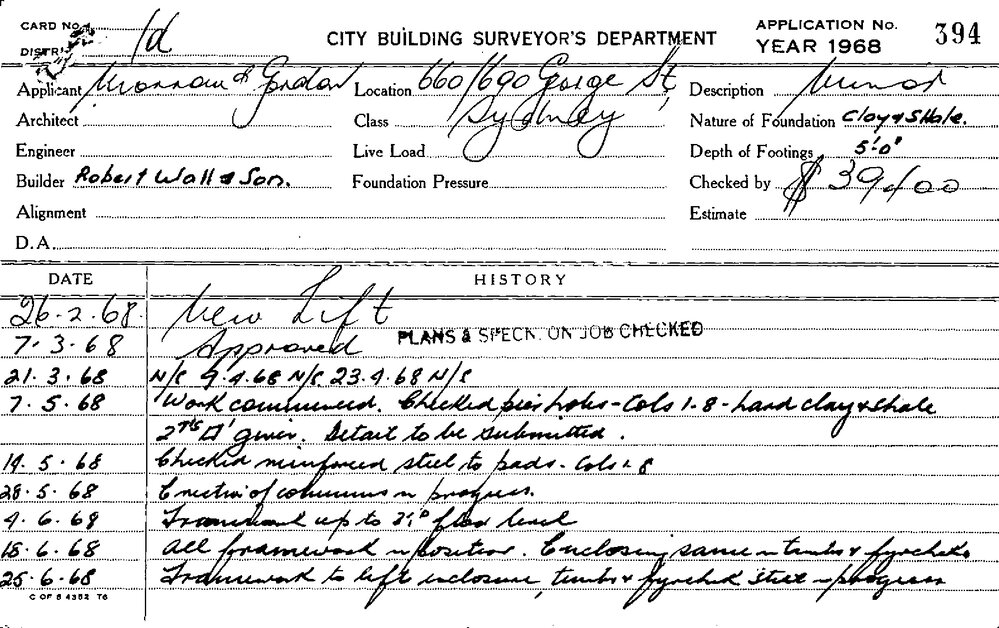 CARD No.
DISTRICT 1d
CITY BUILDING SURVEYOR'S DEPARTMENT
APPLICATION No. 394
YEAR 1968
Applicant Morrow & Gordon Location 660/690 George St, Description Minor
Architect Class Sydney Nature of Foundation Clay & Shale.
Engineer Live Load Depth of Footings 5'-0"
Builder Robert Wall & Son. Foundation Pressure Checked by $39400
Alignment Estimate
D.A.
DATE HISTORY
26.2.68. New Lift
7.3.68 Approved PLANS & SPECN. ON JOB CHECKED
21.3.68 N/S 9.4.68 N/S 23.4.68 N/S
7.5.68 Work commenced. Checked pier holes - Cols 1-8 - hard clay & shale
given. Detail to be submitted.
14.5.68 Checked reinforced steel to pads. Cols 1-8
28.5.68 Erection of columns in progress.
4.6.68 Framework up to floor level
18.6.68 All framework in position. Enclosing same in timber & gyrchek
25.6.68 Framework to lift enclosure, timber & gyrchek sheet in progress
C OF S 4352 76